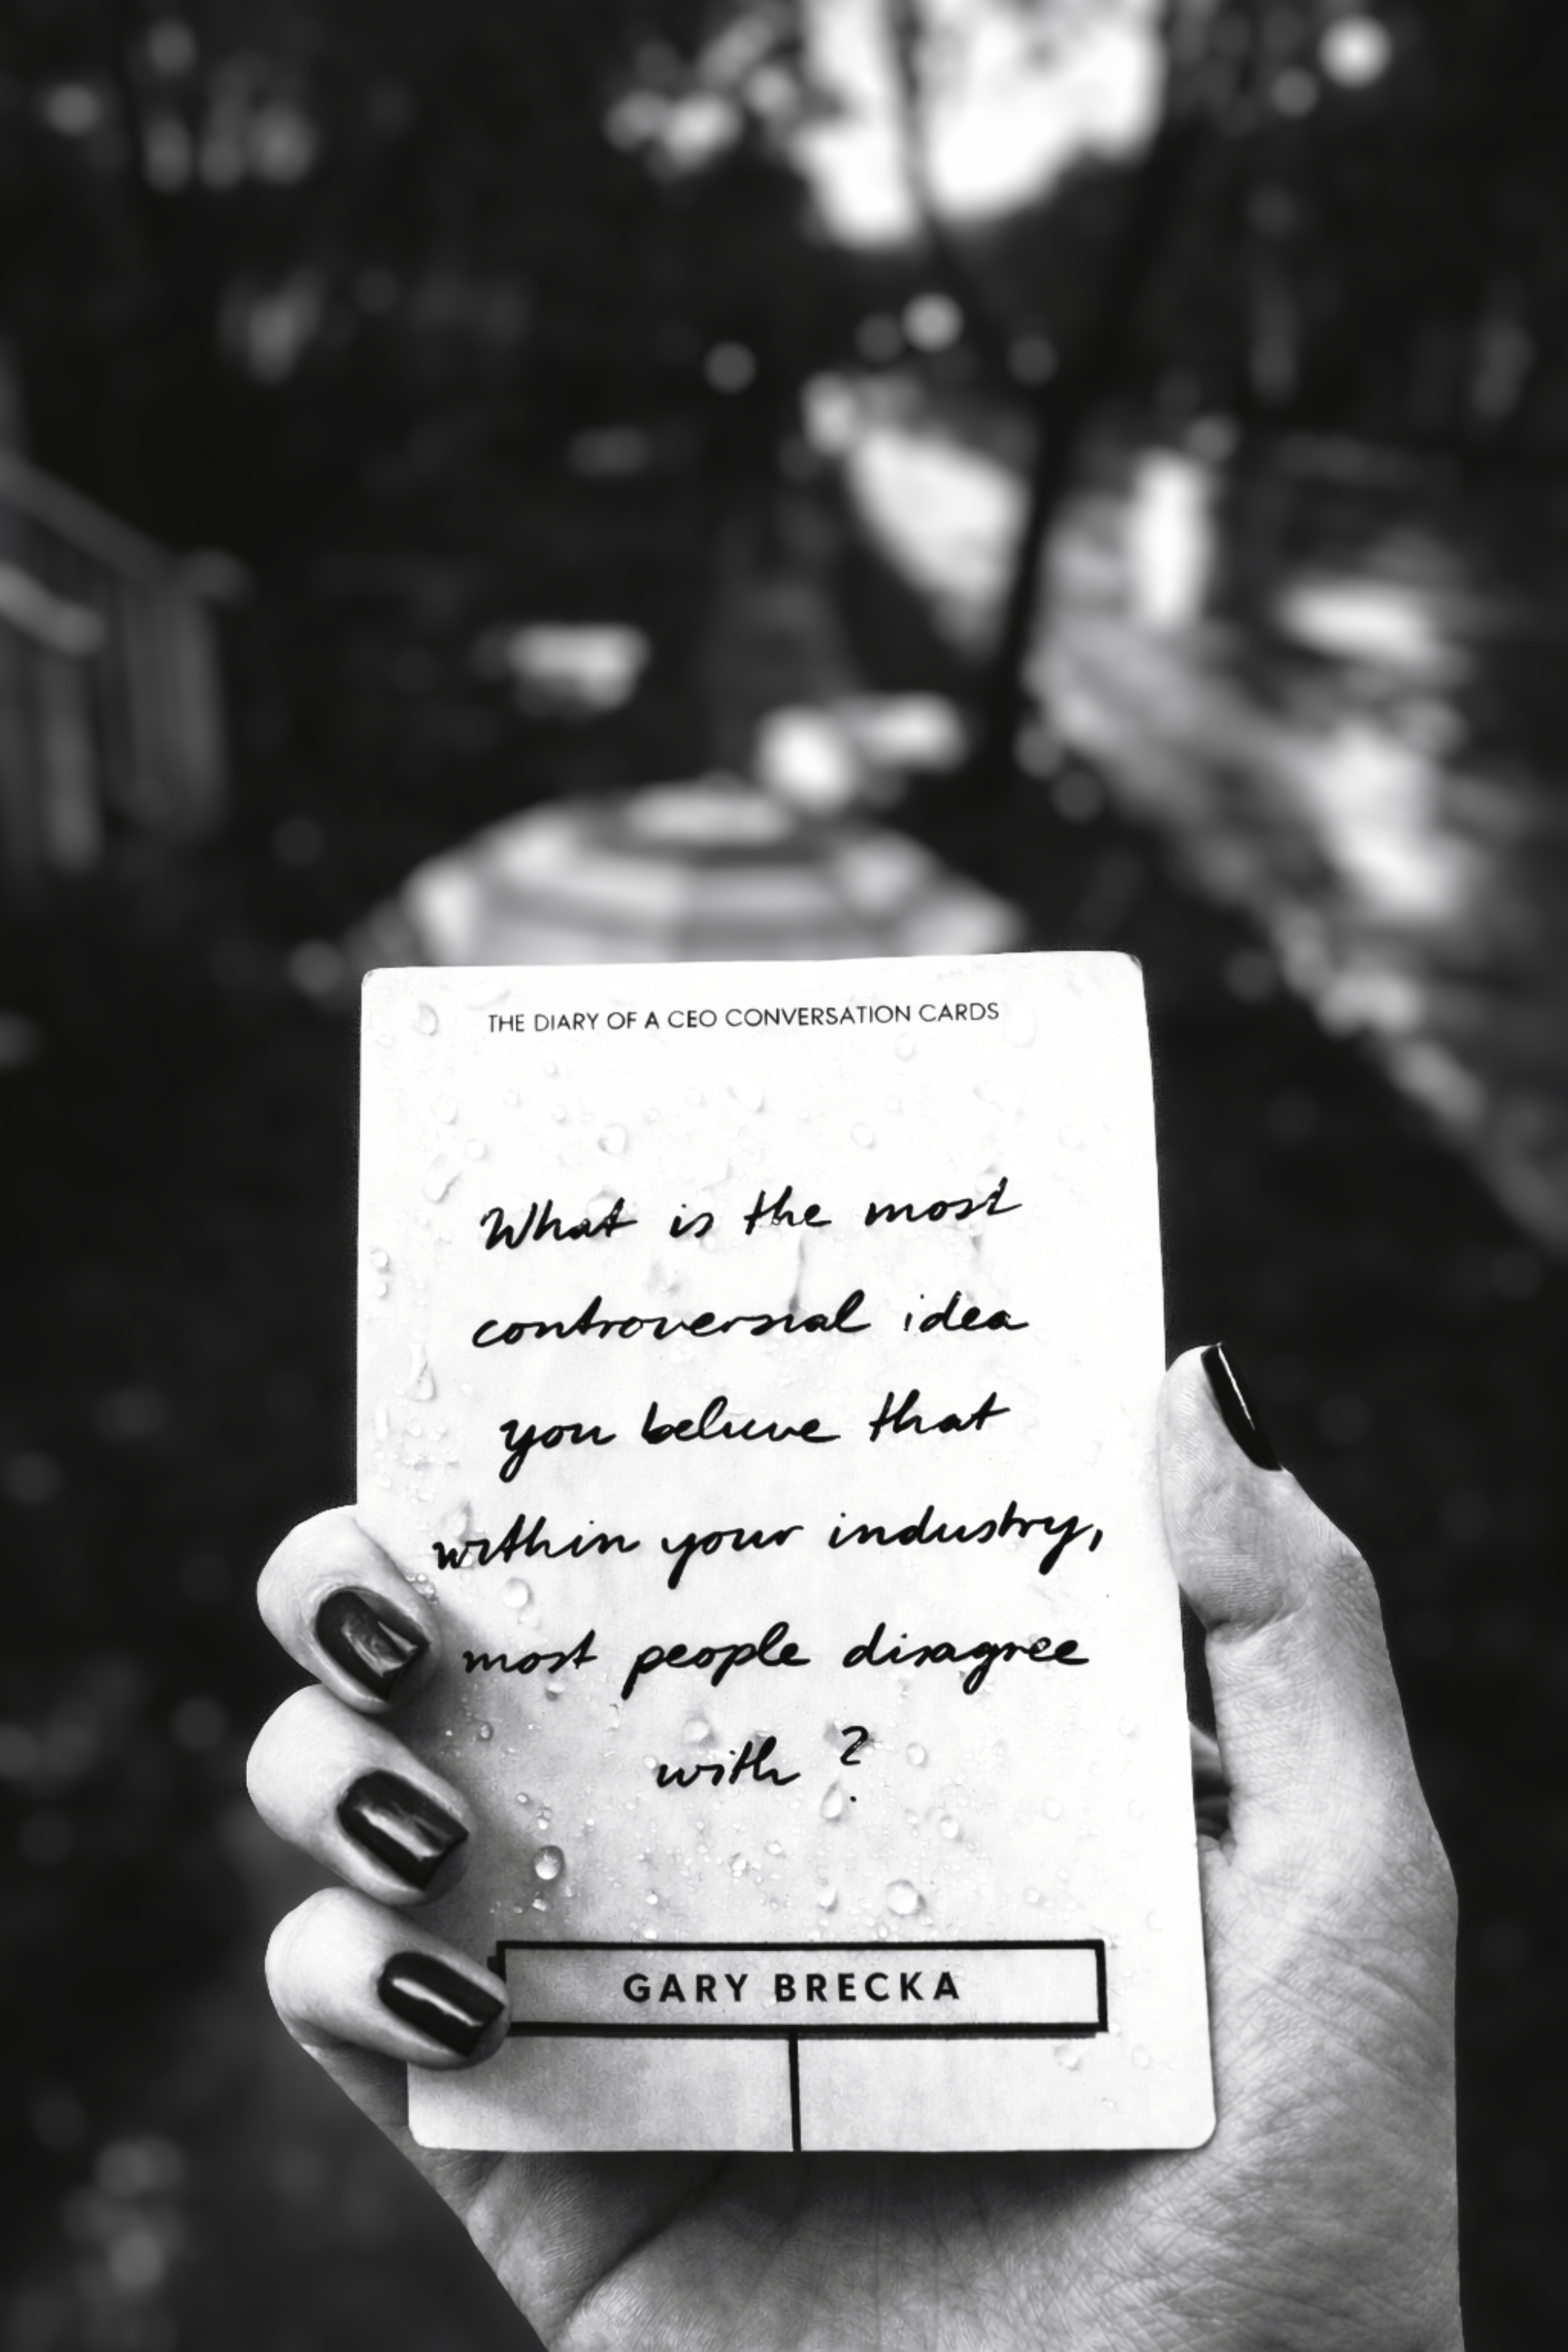 THE DIARY OF A CEO CONVERSATION CARDS
What is the most
controversial idea
you believe that
within your industry,
most people disagree
with ?
GARY BRECKA